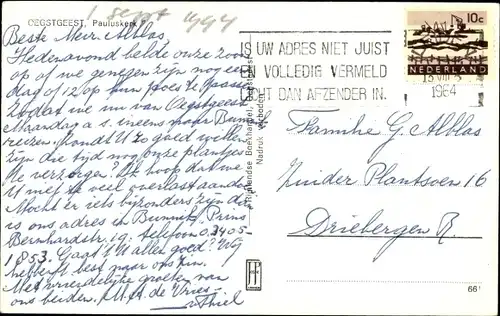 1 sept 1994
OEGSTGEEST, Pauluskerk
Beste Mevr. Alblas,
Hedenavond belde onze zoon
op of we genegen zijn nog een
dag of 12 op hun poes te passen
Zodat we nu van Oegstgeest
Maandag a.s. ineens naar Bunnik
reizen. Zoudt U zo goed willen
zijn die tijd nog onze plantjes
te verzorgen? Ik hoop dat we
U niet te veel overlast aandoen
Mocht er iets bijzonders zijn dan
is ons adres in Bunnik, Prins
Bernhardstr. 19: telefoon 03405-
1853. Gaat 't U allen goed? Wij
hebben 't best naar ons zin.
Met vriendelijke groeten van
ons beiden. de Vries-
v. Thiel
IS UW ADRES NIET JUIST
EN VOLLEDIG VERMELD
LICHT DAN AFZENDER IN.
10c
NEDERLAND
1964
Rijnlandse Boekhandel, Oegstgeest
Nadruk verboden
Familie G. Alblas
Zuider Plantsoen 16
Driebergen R.
661